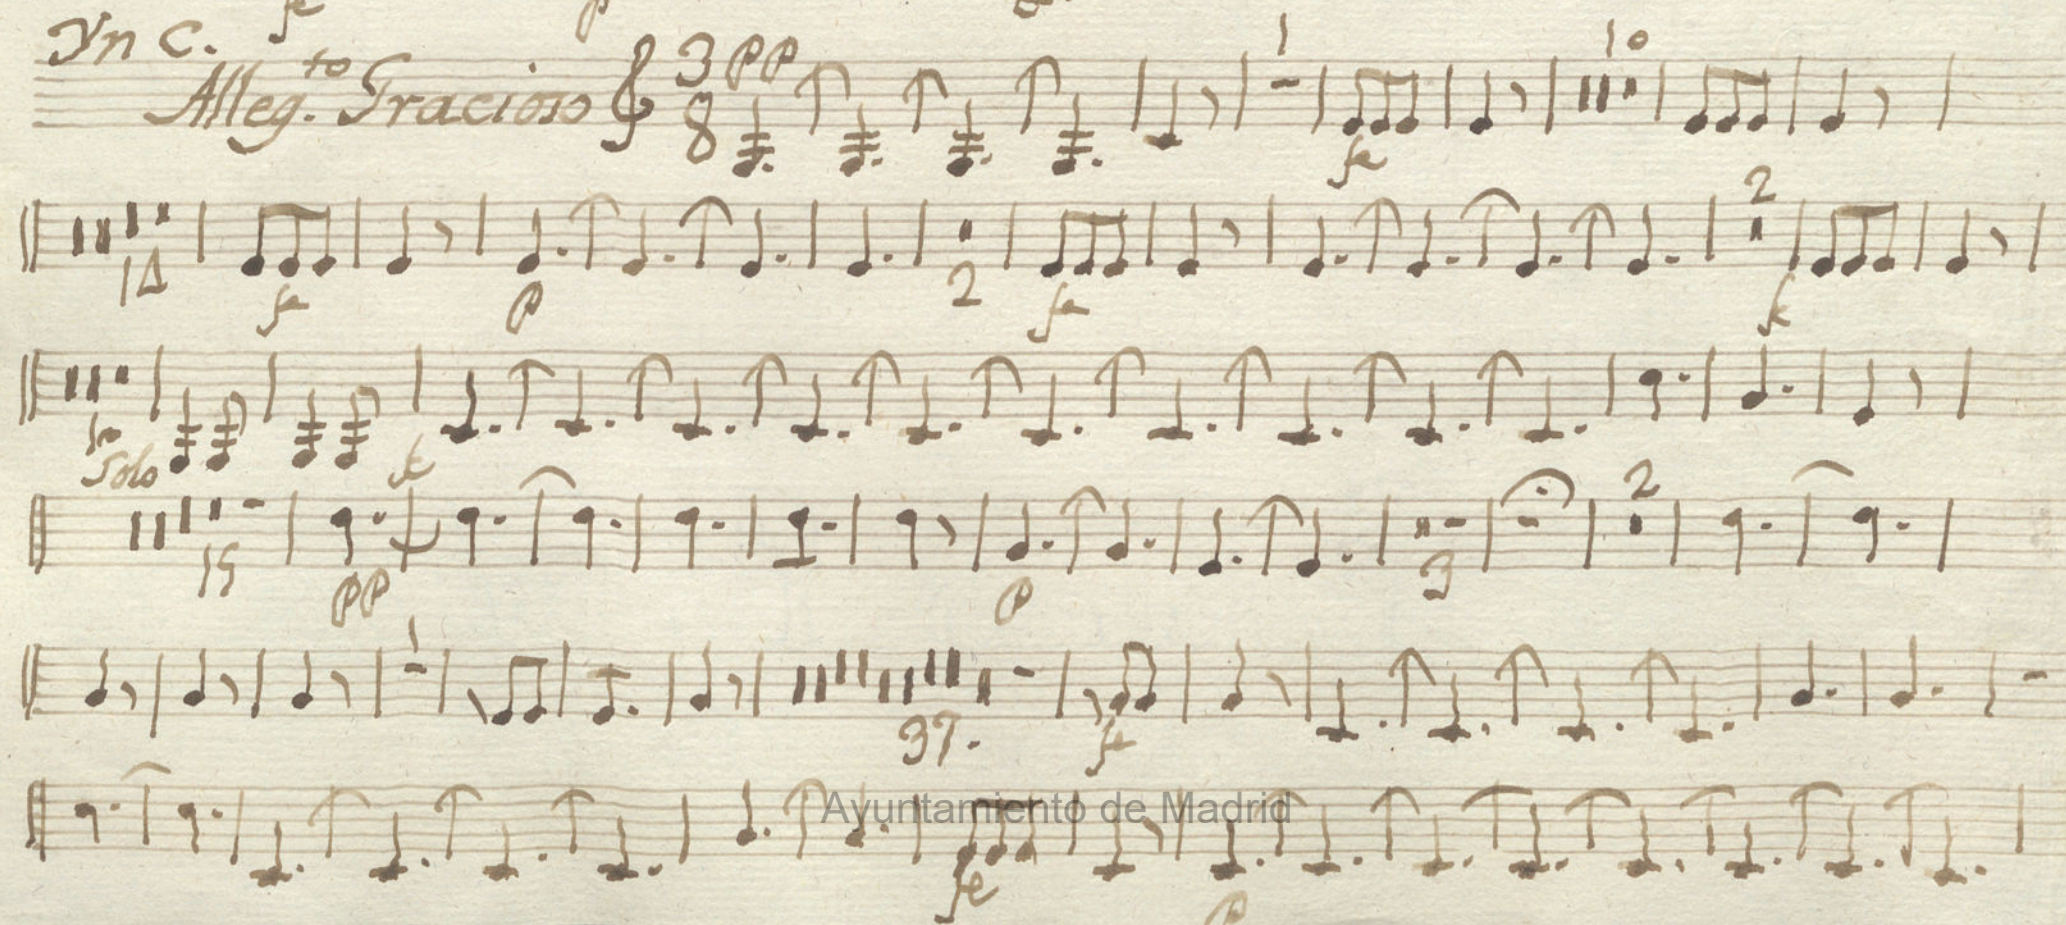 fe p
Yn C.
Alleg.to Gracioso 3 8 PP 1 10
fe
2
14 fe P 2 fe f
Solo f
2
15 PP P 3
1
37. fe
Ayuntamiento de Madrid
fe
P